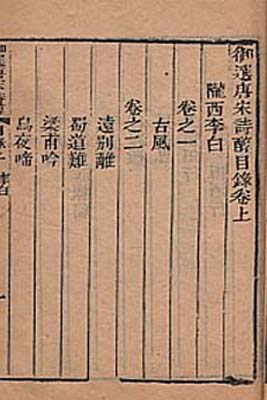 御選唐宋詩醇目錄卷上
隴西李白
卷之一
古風
卷之二
遠別離
蜀道難
梁甫吟
烏夜啼